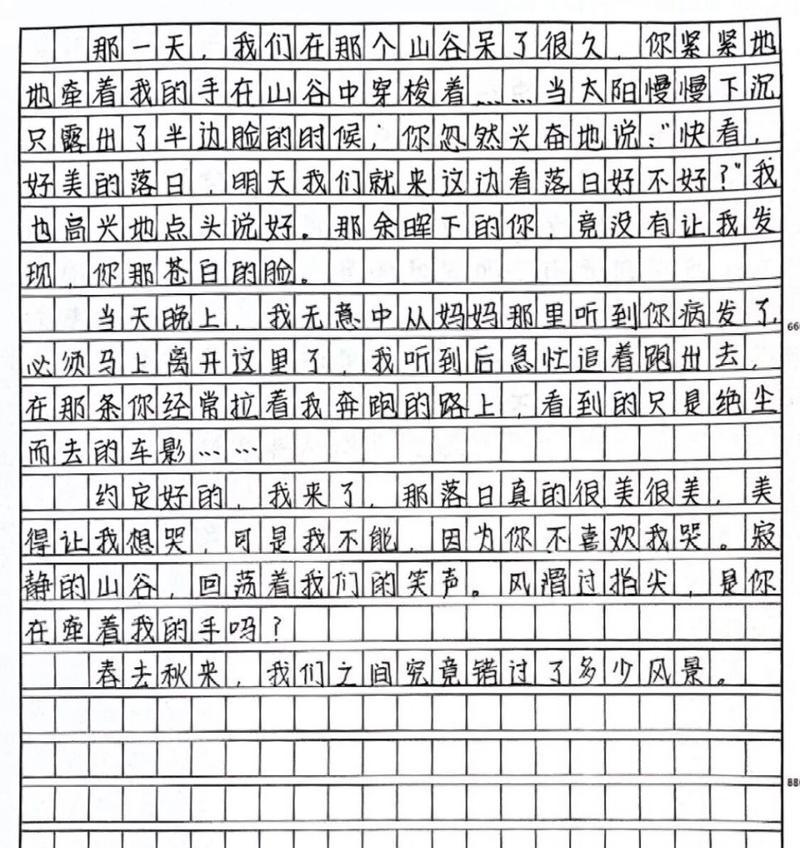 那一天，我们在那个山谷呆了很久，你紧紧地
地牵着我的手在山谷中穿梭着……当太阳慢慢下沉
只露出了半边脸的时候，你忽然兴奋地说：“快看，
好美的落日，明天我们就来这边看落日好不好？”我
也高兴地点头说好。那余晖下的你，竟没有让我发
现，你那苍白的脸。
当天晚上，我无意中从妈妈那里听到你病发了，
必须马上离开这里了，我听到后急忙追着跑出去，
在那条你经常拉着我奔跑的路上，看到的只是绝尘
而去的车影……
约定好的，我来了，那落日真的很美很美，美
得让我想哭，可是我不能，因为你不喜欢我哭。寂
静的山谷，回荡着我们的笑声。风滑过指尖，是你
在牵着我的手吗？
春去秋来，我们之间究竟错过了多少风景。